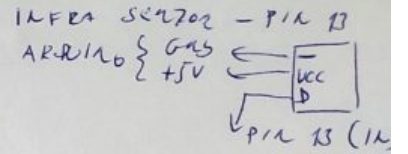 INFRA SENZOR - PIN 13
ARDUINO { GND ← -
+5V ← VCC
D
PIN 13 (IN